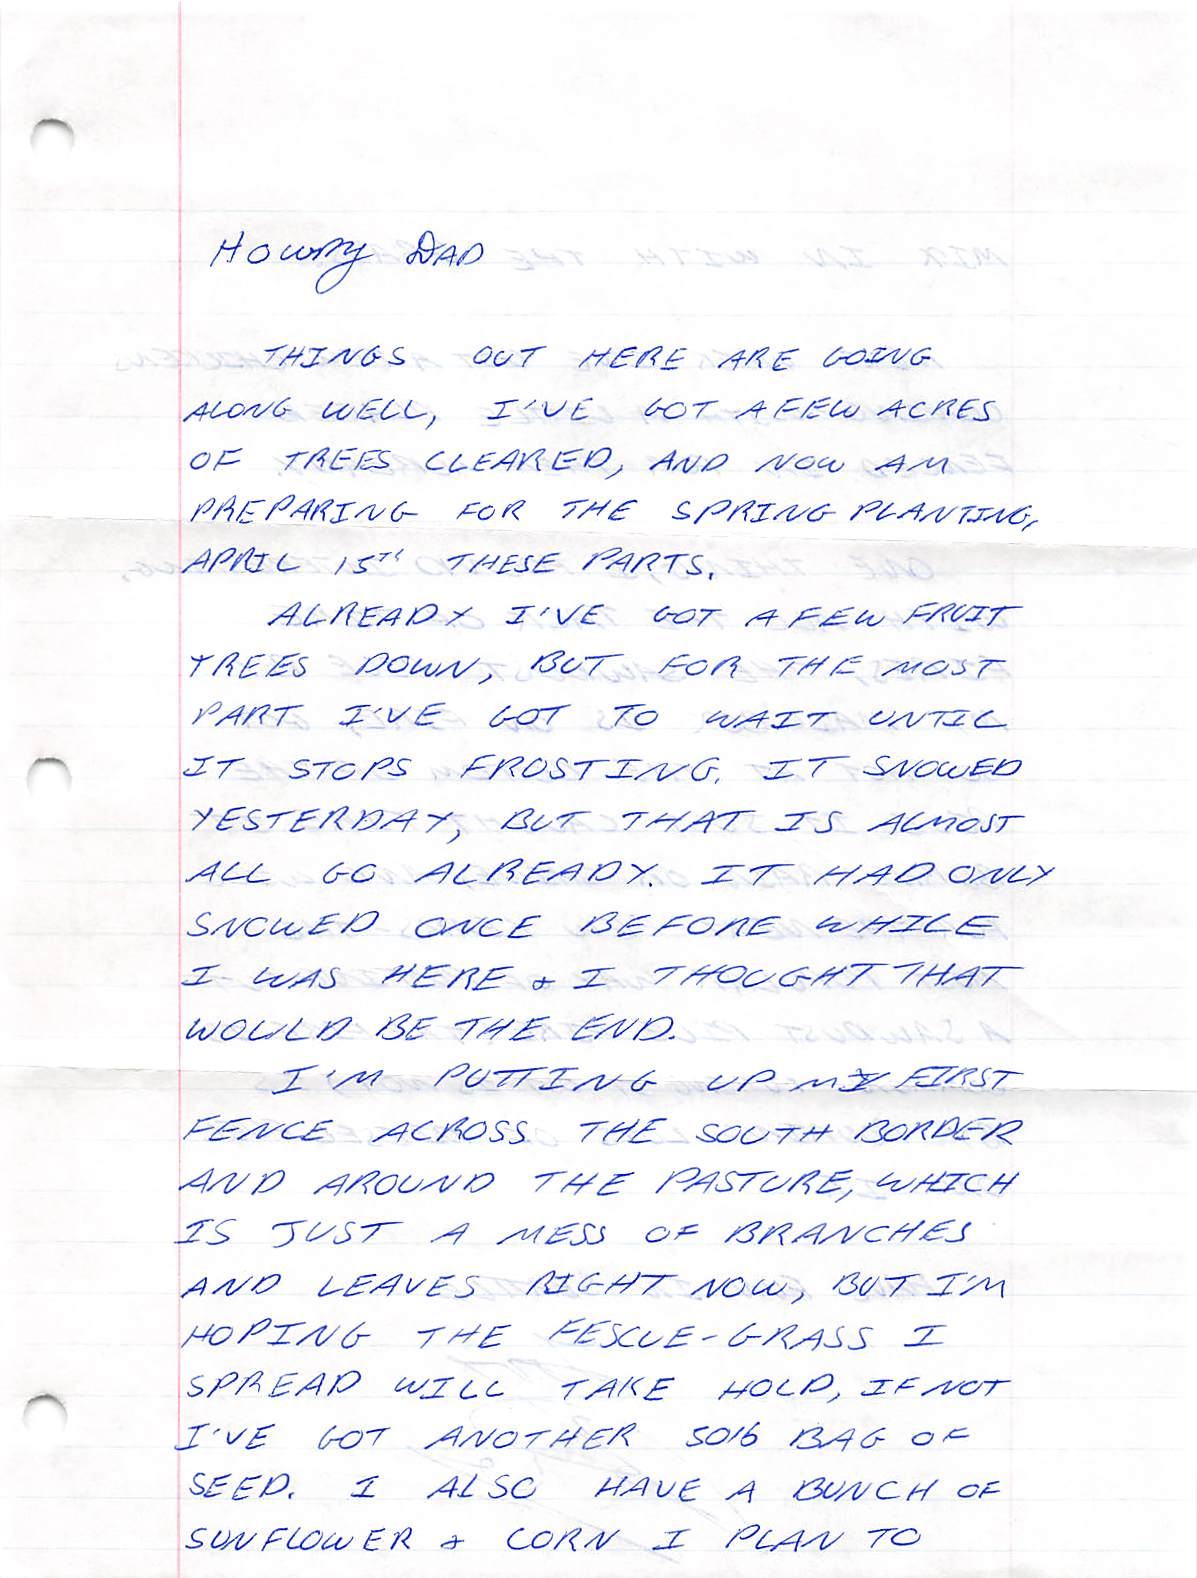 Howdy DAD
THINGS OUT HERE ARE GOING
ALONG WELL, I'VE GOT A FEW ACRES
OF TREES CLEARED, AND NOW AM
PREPARING FOR THE SPRING PLANTING,
APRIL 15TH THESE PARTS.
ALREADY I'VE GOT A FEW FRUIT
TREES DOWN, BUT FOR THE MOST
PART I'VE GOT TO WAIT UNTIL
IT STOPS FROSTING. IT SNOWED
YESTERDAY, BUT THAT IS ALMOST
ALL GO ALREADY. IT HAD ONLY
SNOWED ONCE BEFORE WHILE
I WAS HERE & I THOUGHT THAT
WOULD BE THE END.
I'M PUTTING UP MY FIRST
FENCE ACROSS THE SOUTH BORDER
AND AROUND THE PASTURE, WHICH
IS JUST A MESS OF BRANCHES
AND LEAVES RIGHT NOW, BUT I'M
HOPING THE FESCUE-GRASS I
SPREAD WILL TAKE HOLD, IF NOT
I'VE GOT ANOTHER 50lb BAG OF
SEED. I ALSO HAVE A BUNCH OF
SUNFLOWER & CORN I PLAN TO